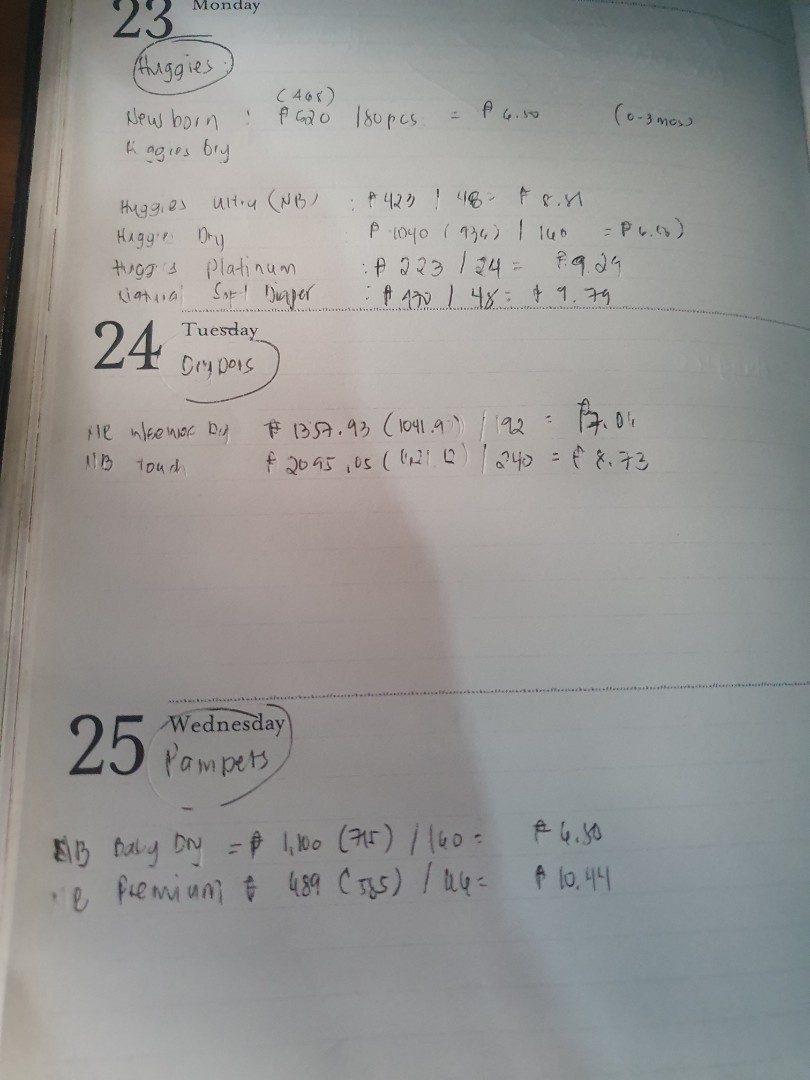 23 Monday
Huggies:
(468)
New born : ₱520 /80pcs = ₱6.50 (0-3mos)
Dry
Huggies Ultra (NB) : ₱423 / 48 = ₱8.81
Huggies Dry ₱1040 (936) / 160 = ₱6.50)
Huggies Platinum : ₱223 / 24 = ₱9.29
Natural Soft Diaper : ₱470 / 48 = ₱9.79
24 Tuesday
Drypers
Dry ₱1357.93 (1041.9 ) / 192 = ₱7.0
NB touch ₱2095.05 ( ) / 240 = ₱8.73
25 Wednesday
Pampers
NB Baby Dry = ₱1,100 (715) / 160 = ₱6.80
Premium ₱489 (585) / = ₱10.44